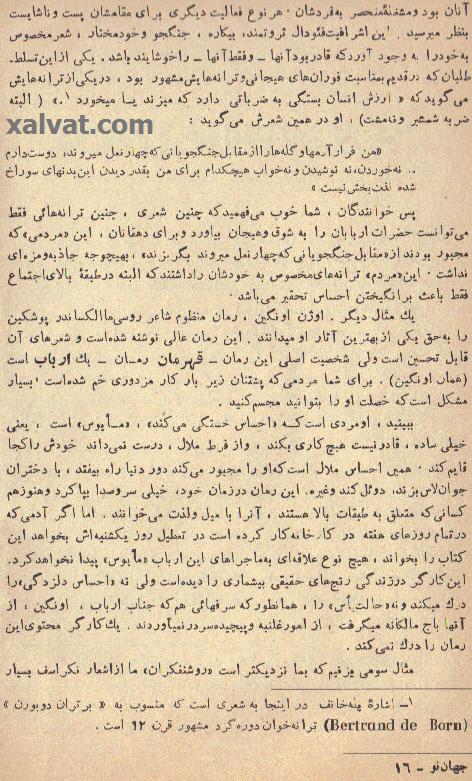 آنان بود و مشغلهٔ منحصر به فردشان . هر نوع فعالیت دیگری برای مقامشان پست و ناشایست
بنظر میرسید . این اشرافیت فئودال ثروتمند، بیکاره ، جنگجو و خودمختار ، شعر مخصوص
به خود را به وجود آورد که قادر بود آنها ـ و فقط آنها ـ را خوشایند باشد. یکی از این تسلط ـ
طلبان که در قدیم بمناسبت فوران‌های هیجانی و ترانه‌هایش مشهور بود ، در یکی از ترانه‌هایش
می‌گوید که « ارزش انسان بستگی به ضرباتی دارد که میزند یا میخورد ۱.» ( البته
ضربه شمشیر و نه مشت) ، او در همین شعرش می‌گوید :
xalvat.com
«من فرار آدمها و گله‌ها را از مقابل جنگجویانی که چهار نعل میروند، دوست دارم
.. نه خوردن، نه نوشیدن و نه خواب هیچکدام برای من بقدر دیدن این بدنهای سوراخ
شده لذت بخش نیست »
پس خوانندگان ، شما خوب می‌فهمید که چنین شعری ، چنین ترانه‌هائی فقط
می‌توانست حضرات اربابان را به شوق و هیجان بیاورد و برای دهقانان ، این «مردمی» که
مجبور بودند از «مقابل جنگجویانی که چهار نعل میروند بگریزند»، بهیچوجه جاذبه و مزه‌ای
نداشت . این «مردم» ترانه‌های مخصوص به خودشان را داشتند که البته در طبقهٔ بالای اجتماع
فقط باعث برانگیختن احساس تحقیر می‌باشد .
یک مثال دیگر . اوژن اونگین ، رمان منظوم شاعر روسی ما الکساندر پوشکین
را به حق یکی از بهترین آثار او میدانند . این رمان عالی نوشته شده است و شعرهای آن
قابل تحسین است ولی شخصیت اصلی این رمان ـ قهرمان رمان ـ یک ارباب است
(همان اونگین) . برای شما مردمی که پشتتان زیر بار کار مزدوری خم شده است ، بسیار
مشکل است که خصلت او را بتوانید مجسم کنید .
ببینید ، او مردی است که «احساس خستگی می‌کند» ، «مأیوس» است ، یعنی
خیلی ساده ، قادر نیست هیچ کاری بکند ، و از فرط ملال ، درست نمی‌داند خودش را کجا
قایم کند . همین احساس ملال است که او را مجبور می‌کند دور دنیا راه بیفتد ، با دختران
جوان لاس بزند، دوئل کند و غیره. این رمان در زمان خود، خیلی سر و صدا بپا کرد و هنوز هم
کسانی که متعلق به طبقات بالا هستند ، آنرا با میل و لذت می‌خوانند . اما اگر آدمی که
در تمام روزهای هفته در کارخانه کار کرده است در تعطیل روز یکشنبه‌اش بخواهد این
کتاب را بخواند ، هیچ نوع علاقه‌ای به ماجراهای این ارباب «مأیوس» پیدا نخواهد کرد.
این کارگر در زندگی رنج‌های حقیقی بیشماری را دیده است ولی نه «احساس دلزدگی» را
درک میکند و نه «حالت یأس» را ، همانطور که سرفهائی هم که جناب ارباب ، اونگین ، از
آنها باج مالکانه میگرفت ، از امور غلنبه و پیچیده سر در نمیآوردند . یک کارگر محتوی این
رمان را درک نمی‌کند .
مثال سومی بزنیم که بما نزدیکتر است «روشنفکران» ما از اشعار نکراسف بسیار
۱ـ اشارهٔ پلخانف در اینجا به شعری است که منسوب به « برتران دوبورن »
(Bertrand de Born) ترانه‌خوان دوره‌گرد مشهور قرن ۱۲ است .
جهان نو ـ ۱۶